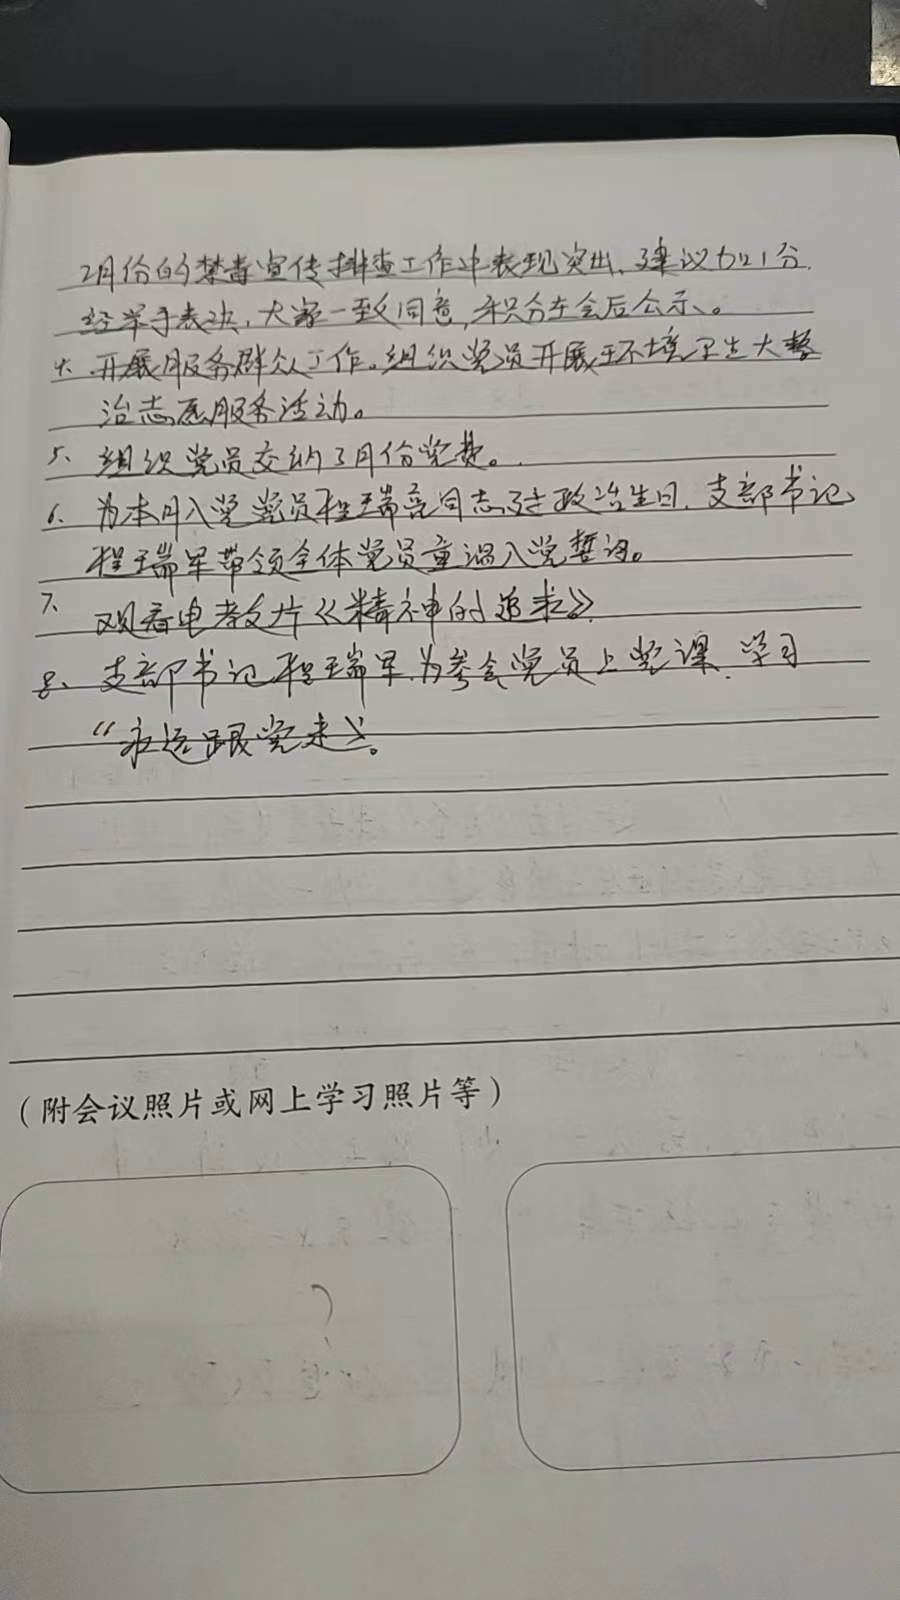 2月份的禁毒宣传排查工作中表现突出、建议加1分.
经举手表决,大家一致同意,积分在会后公示。
4、开展服务群众工作。组织党员开展环境卫生大整
治志愿服务活动。
5、组织党员交纳3月份党费。
6、为本月入党党员程瑞亮同志过政治生日、支部书记
程瑞军带领全体党员重温入党誓词。
7、观看电教文片《精神的追求》
8、支部书记程瑞军为参会党员上党课、学习
“永远跟党走”。
(附会议照片或网上学习照片等)